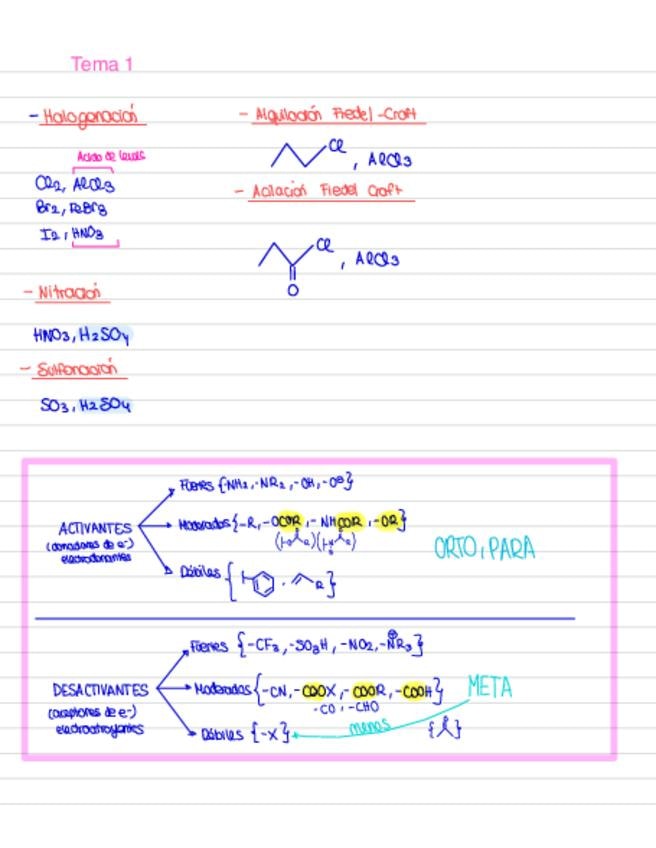 Tema 1
- Halogenación
Acido de Lewis
Cl2, AlCl3
Br2, FeBr3
I2, HNO3
- Nitración
HNO3, H2SO4
- Sulfonación
SO3, H2SO4
- Alquilación Fiedel-Craft
Cl, AlCl3
- Acilación Fiedel Craft
Cl, AlCl3
O
ACTIVANTES
(donadores de e-)
electrodonantes
Fuertes {-NH2, -NR2, -OH, -O⊖}
Moderados {-R, -OCOR, -NHCOR, -OR}
Débiles { R }
ORTO, PARA
DESACTIVANTES
(aceptores de e-)
electroatrayentes
Fuertes {-CF3, -SO3H, -NO2, -NR3}
⊕
Moderados {-CN, -COOX, -COOR, -COOH}
-CO, -CHO
Débiles {-X}
META
menos